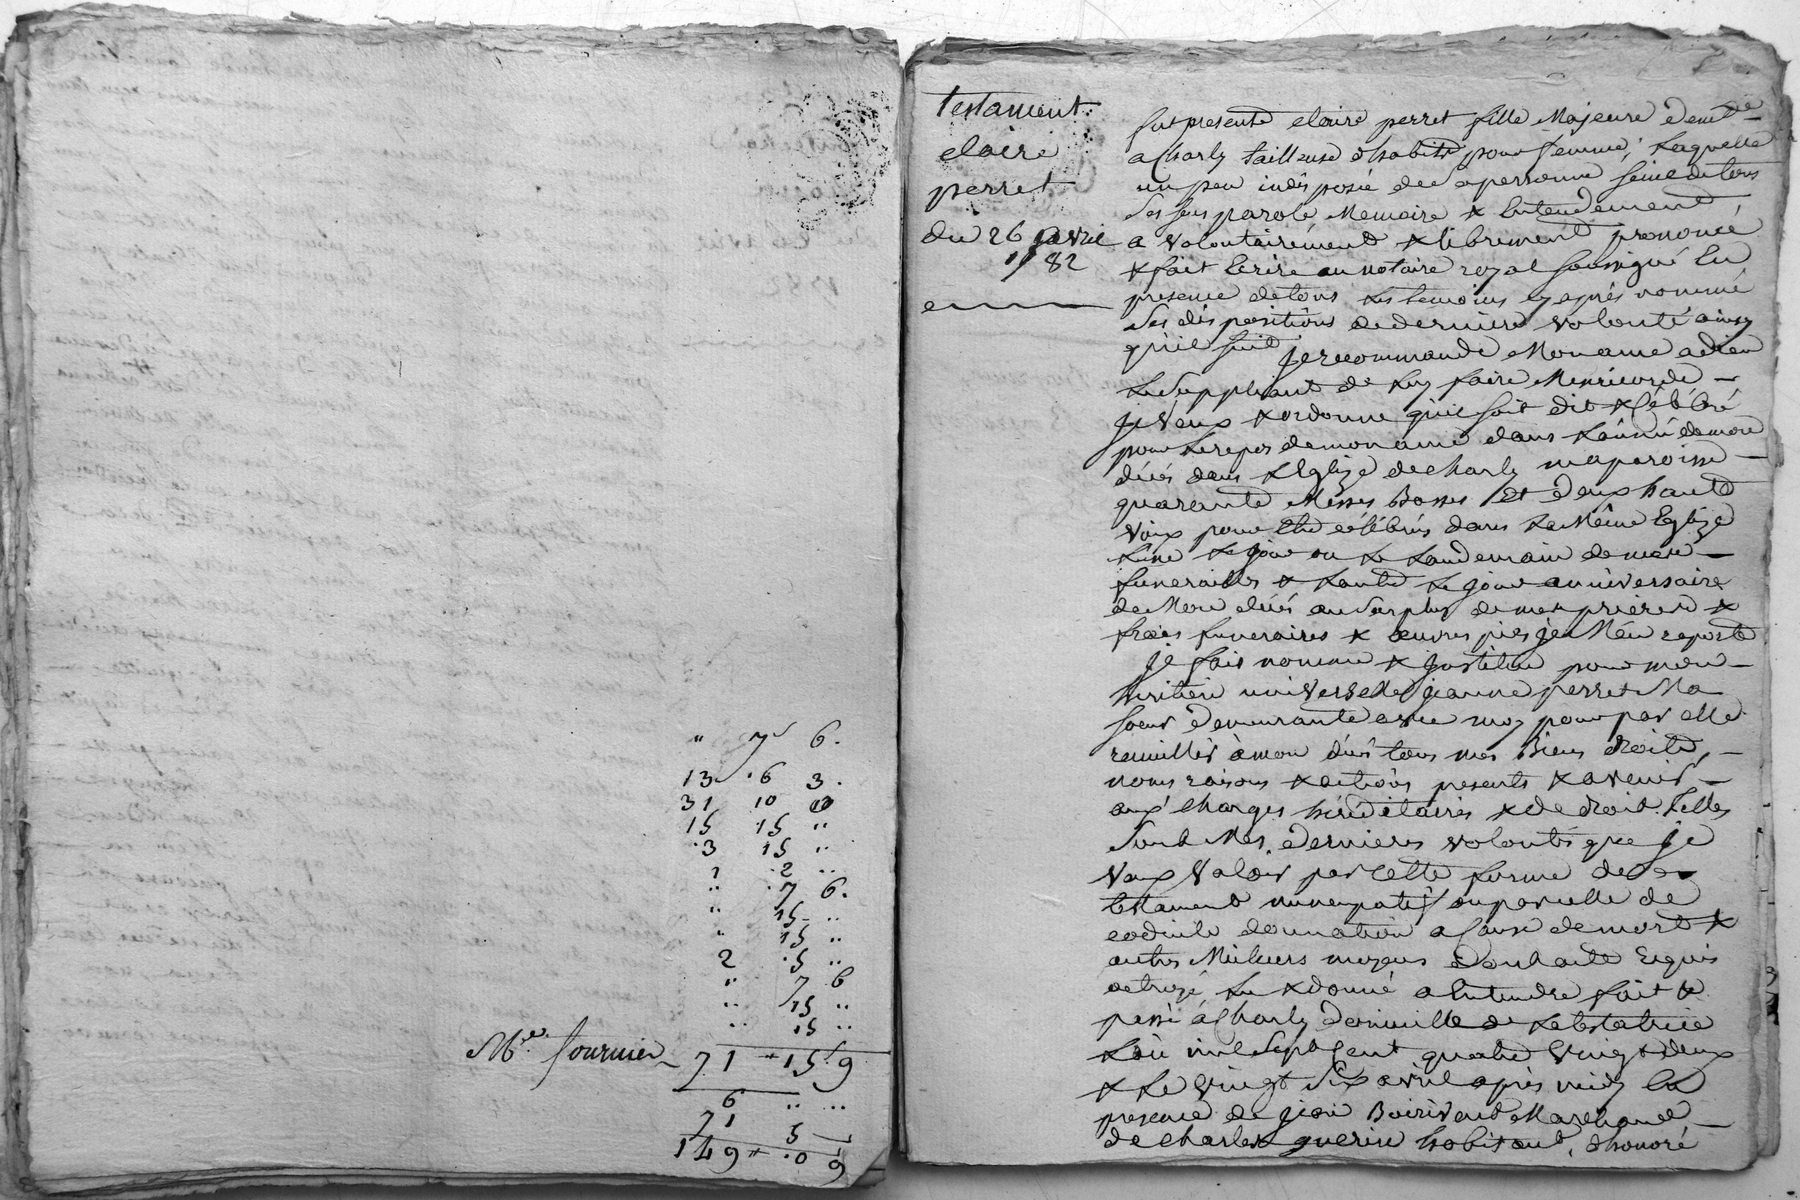 " 7 6.
13 .6 3.
31 10
15 15 "
.3 15 "
1 .2 "
" .7 6.
" 15 "
" 15 "
2 .5 "
" 7 6
" 15 "
" 15 "
fournier 71 15 9
6 " "
71 5
149 .0 9
testament
claire
perret
du 26 avril
1782
fut presente claire perret fille Majeure demt
a Charly tailleuse dhabits pour femme, Laquelle
un peu indisposée de sa personne seine de tous
ses sens parole Memoire & Entendement
a volontairement & librement prononcé
& fait Ecrire au notaire royal soussigné En
presence de tous Les temoins cy après nommé
ses dispositions de derniere volonté ainsy
qu'il suit je recommande Mon ame a dieu
Le suppliant de Luy faire Misericorde
je veux & ordonne qu'il soit dit & célébré
pour Le repos de mon ame dans L'année de mon
décés dans L'Eglize de charly ma paroisse
quarante Messes Basses Et deux haute
voix pour Etre célébrés dans La Même Eglize
L'une Le jour ou Le Landemain de mes
funerailles & Lautre Le jour anniversaire
de Mon décés au surplus de mes prieres &
frais funeraires & œuvres pies je M'en reporte
je fais nomme & institue pour mon
heritiere universelle jeanne perret Ma
soeur demeurante avec moy pour par elle
recueillir à mon décés tous mes Biens droits,
noms raisons & actions presents & avenir
aux charges héréditaires & de droit. telles
sont Mes dernieres volontés que je
veux valoir par Cette forme de
testament nuncupatif ou par celle de
codicile donnation a Cause de mort &
autres Meilleurs moyens dont acte Requis
octroyé Lu & donné a Entendre fait &
passé à Charly domicille de La testatrice
L'an mil sept Cent quatre vingt deux
& Le vingt six avril après midy En
presence de jean Boirivent Marchand
de charly guerin habitant, honoré